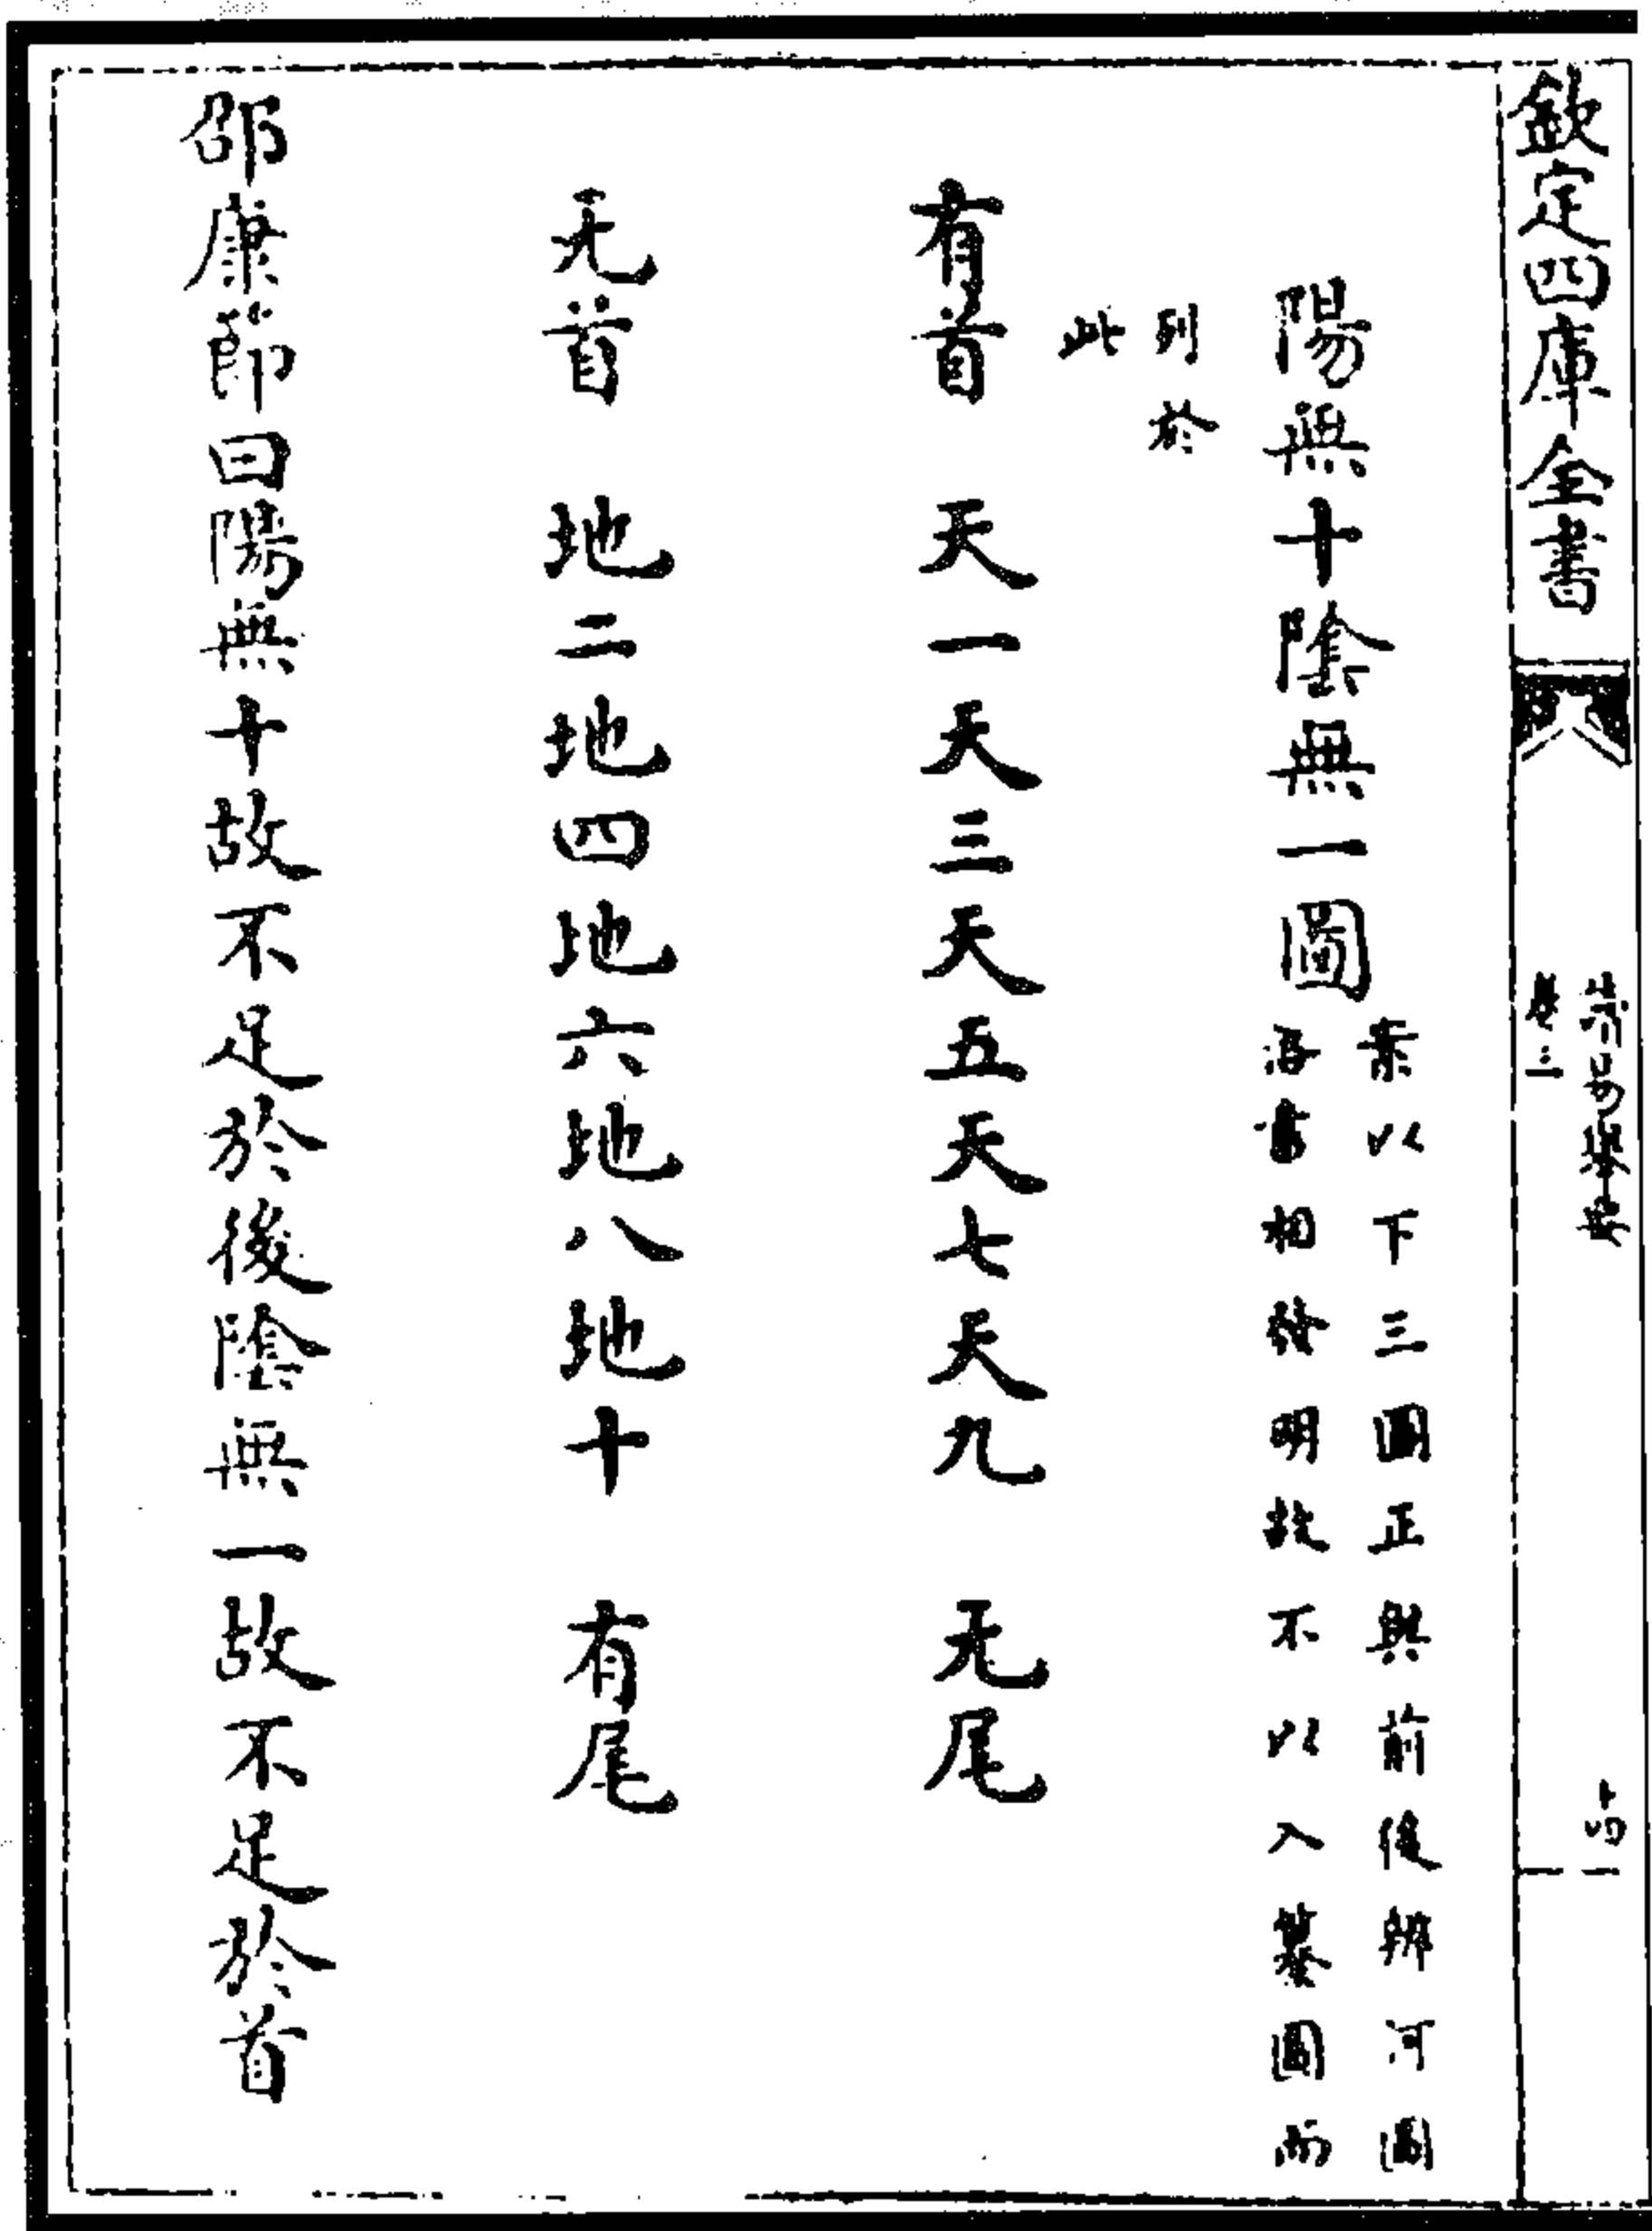 欽定四庫全書
十四
陽無十陰無一圖
案以下三圖正與前後辨河圖
洛書相發明故不以入纂圖而
列於
此
有首 天一天三天五天七天九 无尾
无首 地二地四地六地八地十 有尾
邵康節曰陽無十故不足於後陰無一故不足於首